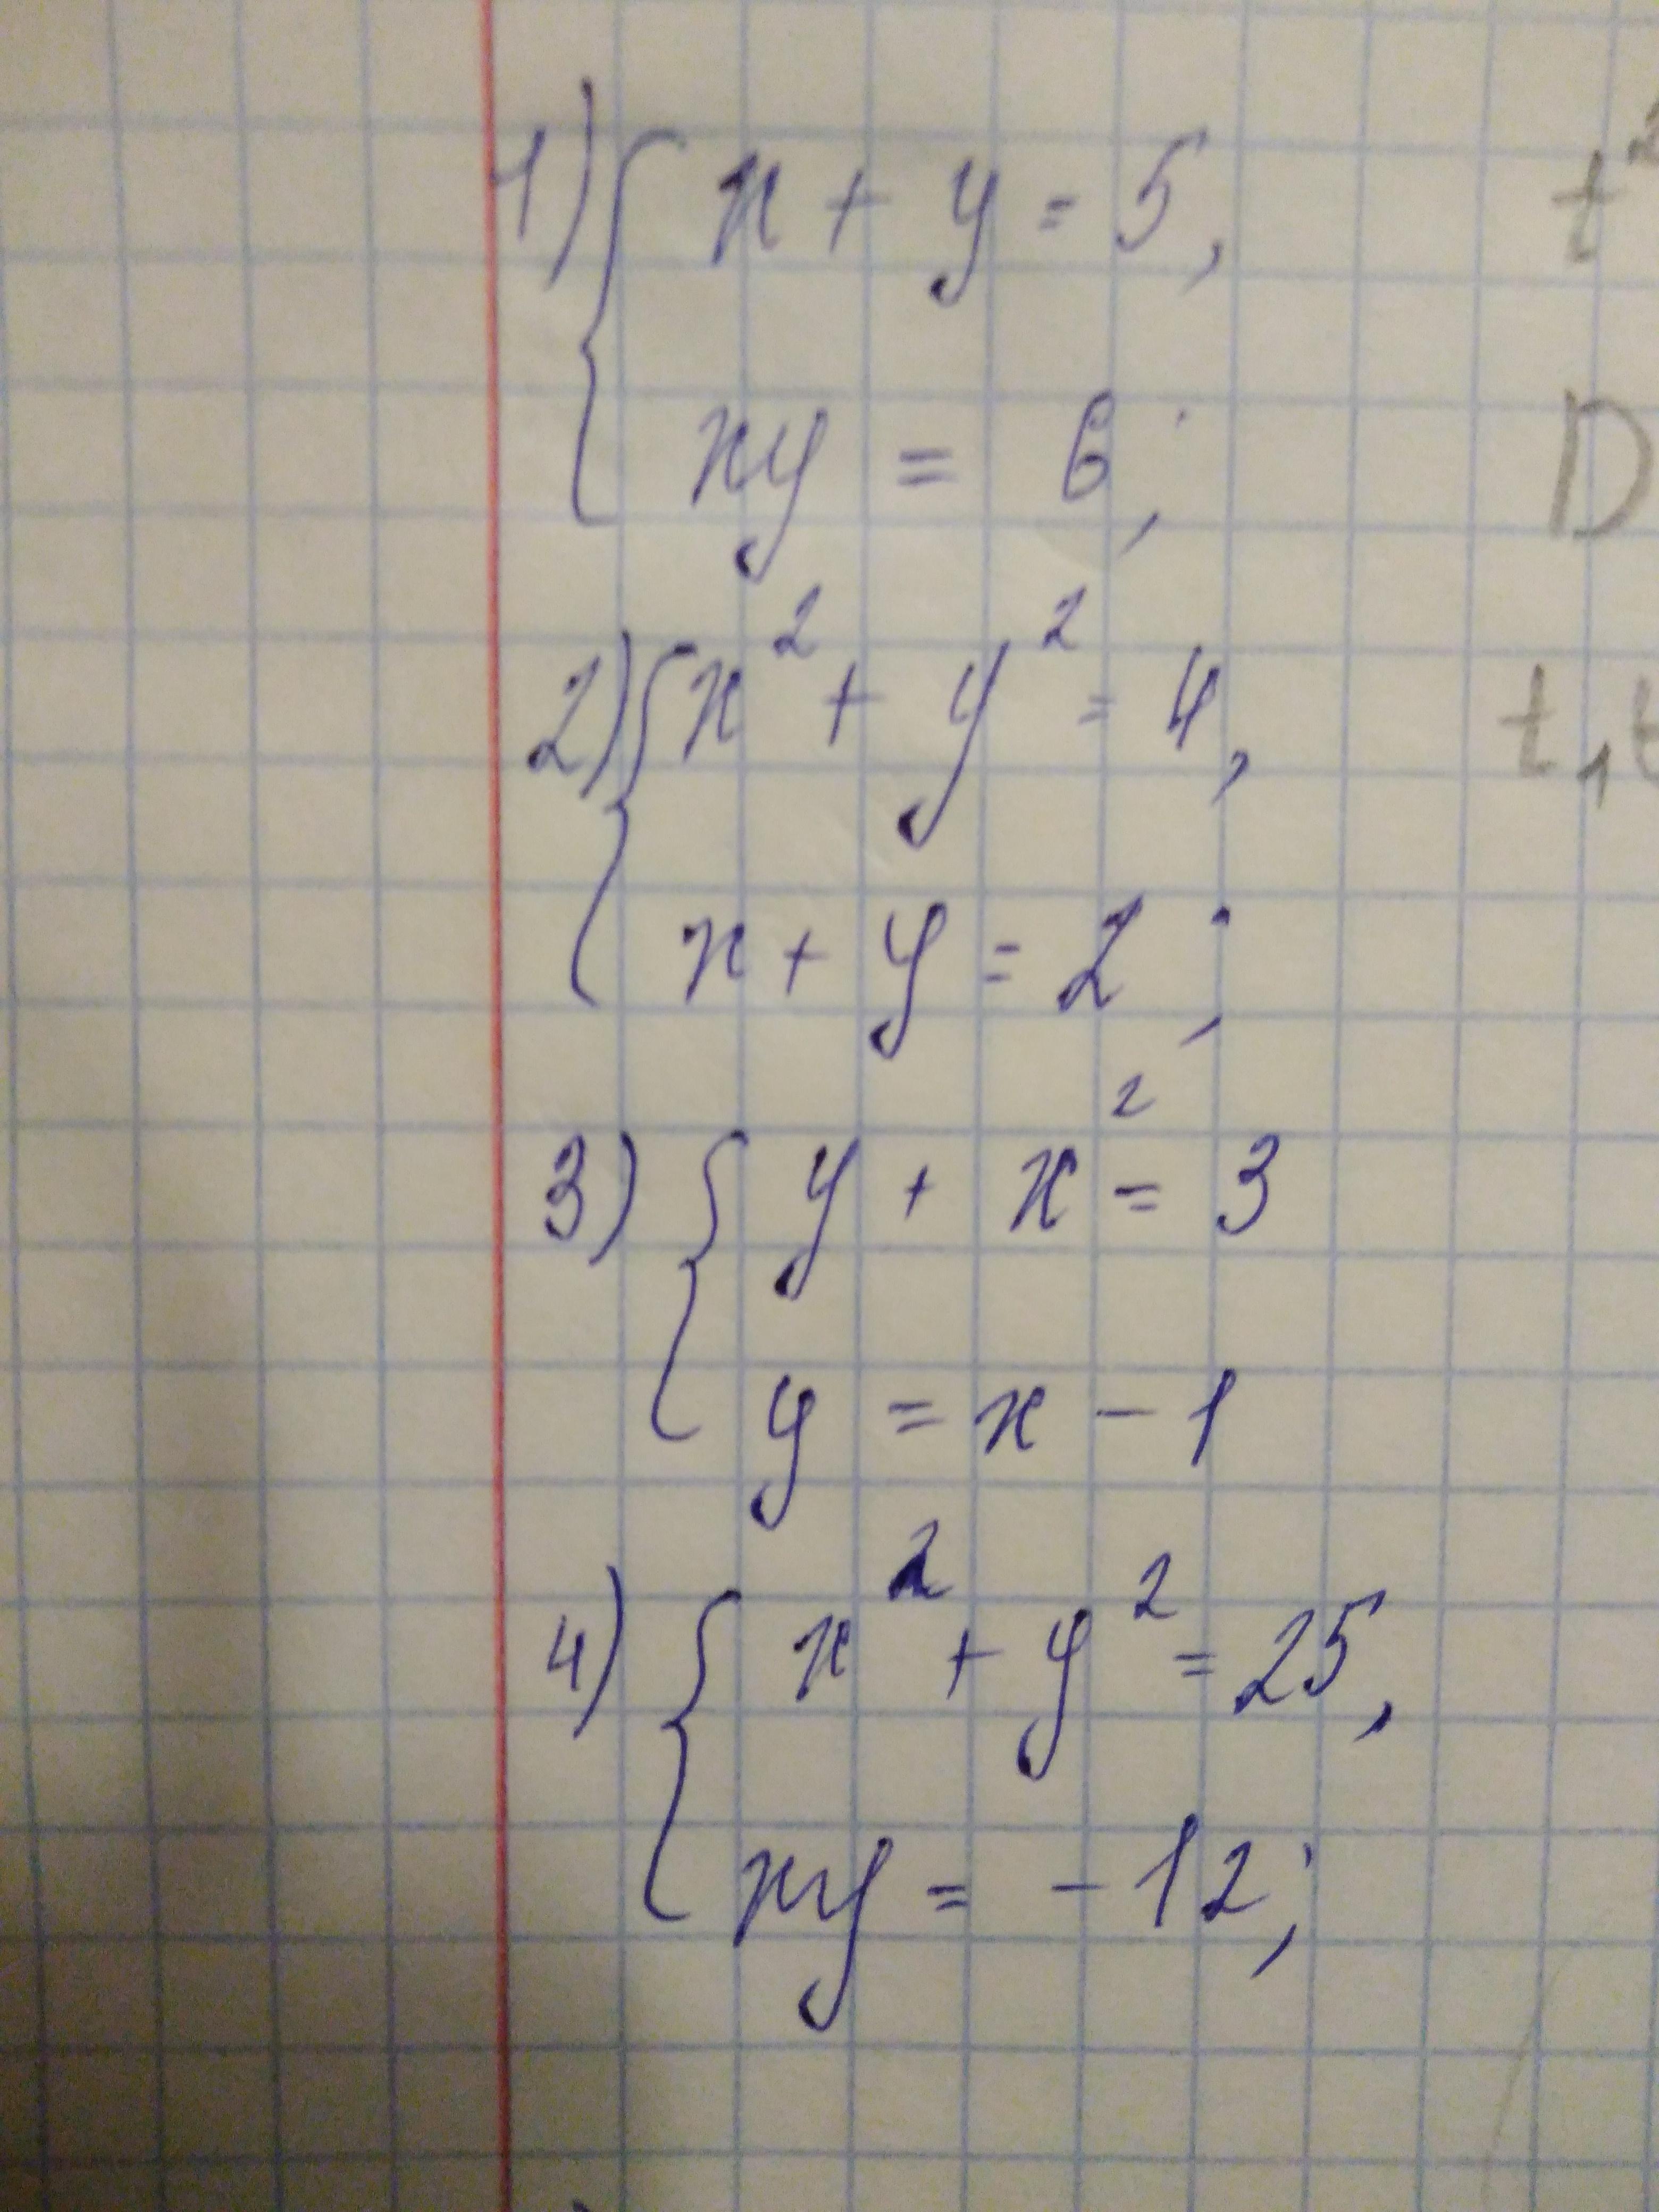 1) { x + y = 5,
xy = 6;
2) { x² + y² = 4,
x + y = 2;
3) { y + x² = 3
y = x - 1
4) { x² + y² = 25,
xy = -12;
t²
D
t₁t